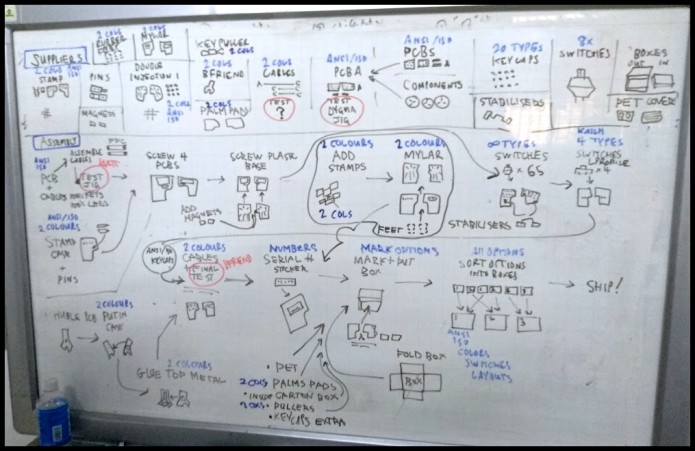 SUPPLIERS
2 COLS
RUBBER
FEET
2 COLS
MYLAR
KEY PULLER
2 COLS
ANSI/ISO
PCBS
20 TYPES
KEYCAPS
8x
SWITCHES
BOXES
OUT
IN
2 COLS
STAMP
ANSI
ISO
PINS
DOUBLE
2 COLS
BFRIEND
2 COLS
CABLES
ANSI/ISO
PCBA
COMPONENTS
#
MAGNETS
#
2 COL
ANSI
ISO
2 COLS
PALM PADS
TEST
?
TEST
DYGMA
JIG
STABILISERS
PET COVERS
ASSEMBLY
ASSEMBLE
CABLES
ANSI
ISO
PCB
+
CABLES
TEST
JIG
SCREW 4
PCBS
SCREW PLASTIC
BASE
ADD
MAGNETS
2 COLOURS
ADD
STAMPS
2 COLS
2 COLOURS
MYLAR
FEET
∞ TYPES
SWITCHES
x 68
STABILISERS
4 TYPES
SWITCHES
x 4
ANSI/ISO
2 COLOURS
STAMP
CASE
+
PINS
ANSI/ISO
KEYCAPS
2 COLOURS
CABLES
+ FINAL
TEST
BFRIEND
NUMBERS
SERIAL #
STICKER
MARK OPTIONS
MARK + PUT
BOX
OPTIONS
SORT OPTIONS
INTO BOXES
SHIP!
1
2
3
ANSI
ISO
COLORS
SWITCHES
LAYOUTS
2 COLOURS
PUT IN
CASE
2 COLOURS
GLUE TOP METAL
FOLD BOX
BOX
• PET
2 COLS PALMS PADS
• INSIDE CARTON BOX
2 COLS • PULLERS
• KEYCAPS EXTRA